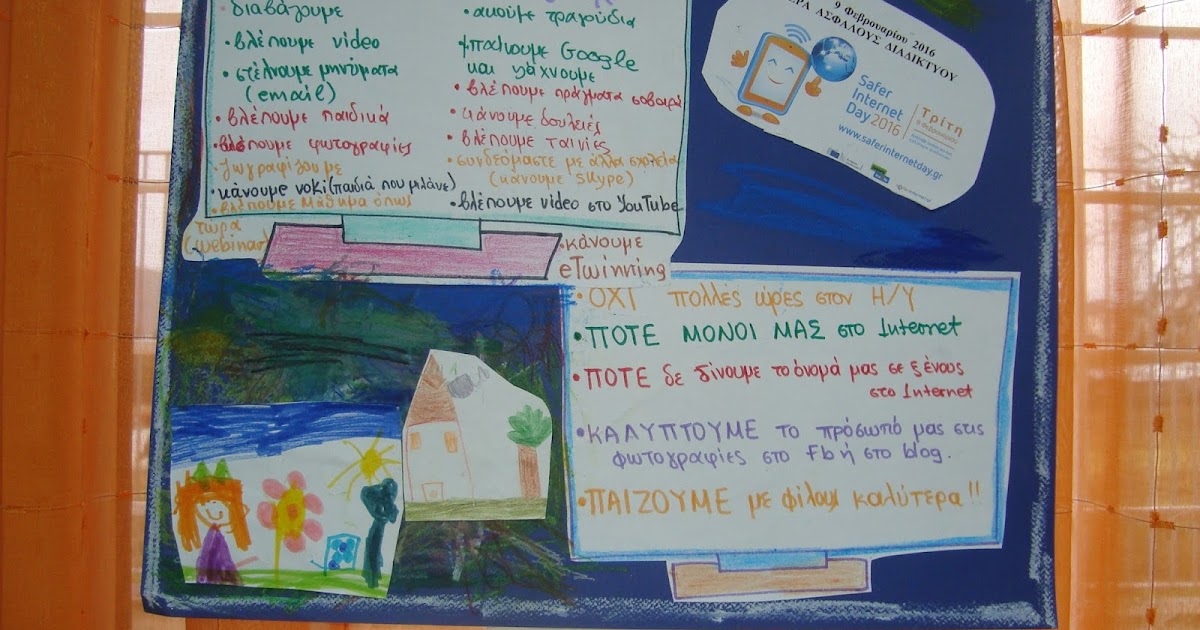 • διαβάζουμε
• βλέπουμε video
• στέλνουμε μηνύματα
(email)
• βλέπουμε παιδικά
• βλέπουμε φωτογραφίες
• ζωγραφίζουμε
• κάνουμε voki (παιδιά που μιλάνε)
• βλέπουμε μάθημα όπως
τώρα
(webinar)
• ακούμε τραγούδια
μπαίνουμε Google
και ψάχνουμε
• βλέπουμε πράγματα σοβαρά
• κάνουμε δουλειές
• βλέπουμε ταινίες
• συνδεόμαστε με άλλα σχολεία
(κάνουμε skype)
• βλέπουμε video στο YouTube
• κάνουμε
eTwinning
9 Φεβρουαρίου 2016
ΑΣΦΑΛΟΥΣ ΔΙΑΔΙΚΤΥΟΥ
Safer
Internet
Day 2016
Τρίτη
9 Φεβρουαρίου
www.saferinternetday.gr
• ΟΧΙ πολλές ώρες στον Η/Υ
• ΠΟΤΕ ΜΟΝΟΙ ΜΑΣ στο Internet
• ΠΟΤΕ δε δίνουμε το όνομά μας σε ξένους
στο Internet
• ΚΑΛΥΠΤΟΥΜΕ το πρόσωπό μας στις
φωτογραφίες στο fb ή στο blog.
• ΠΑΙΖΟΥΜΕ με φίλους καλύτερα!!